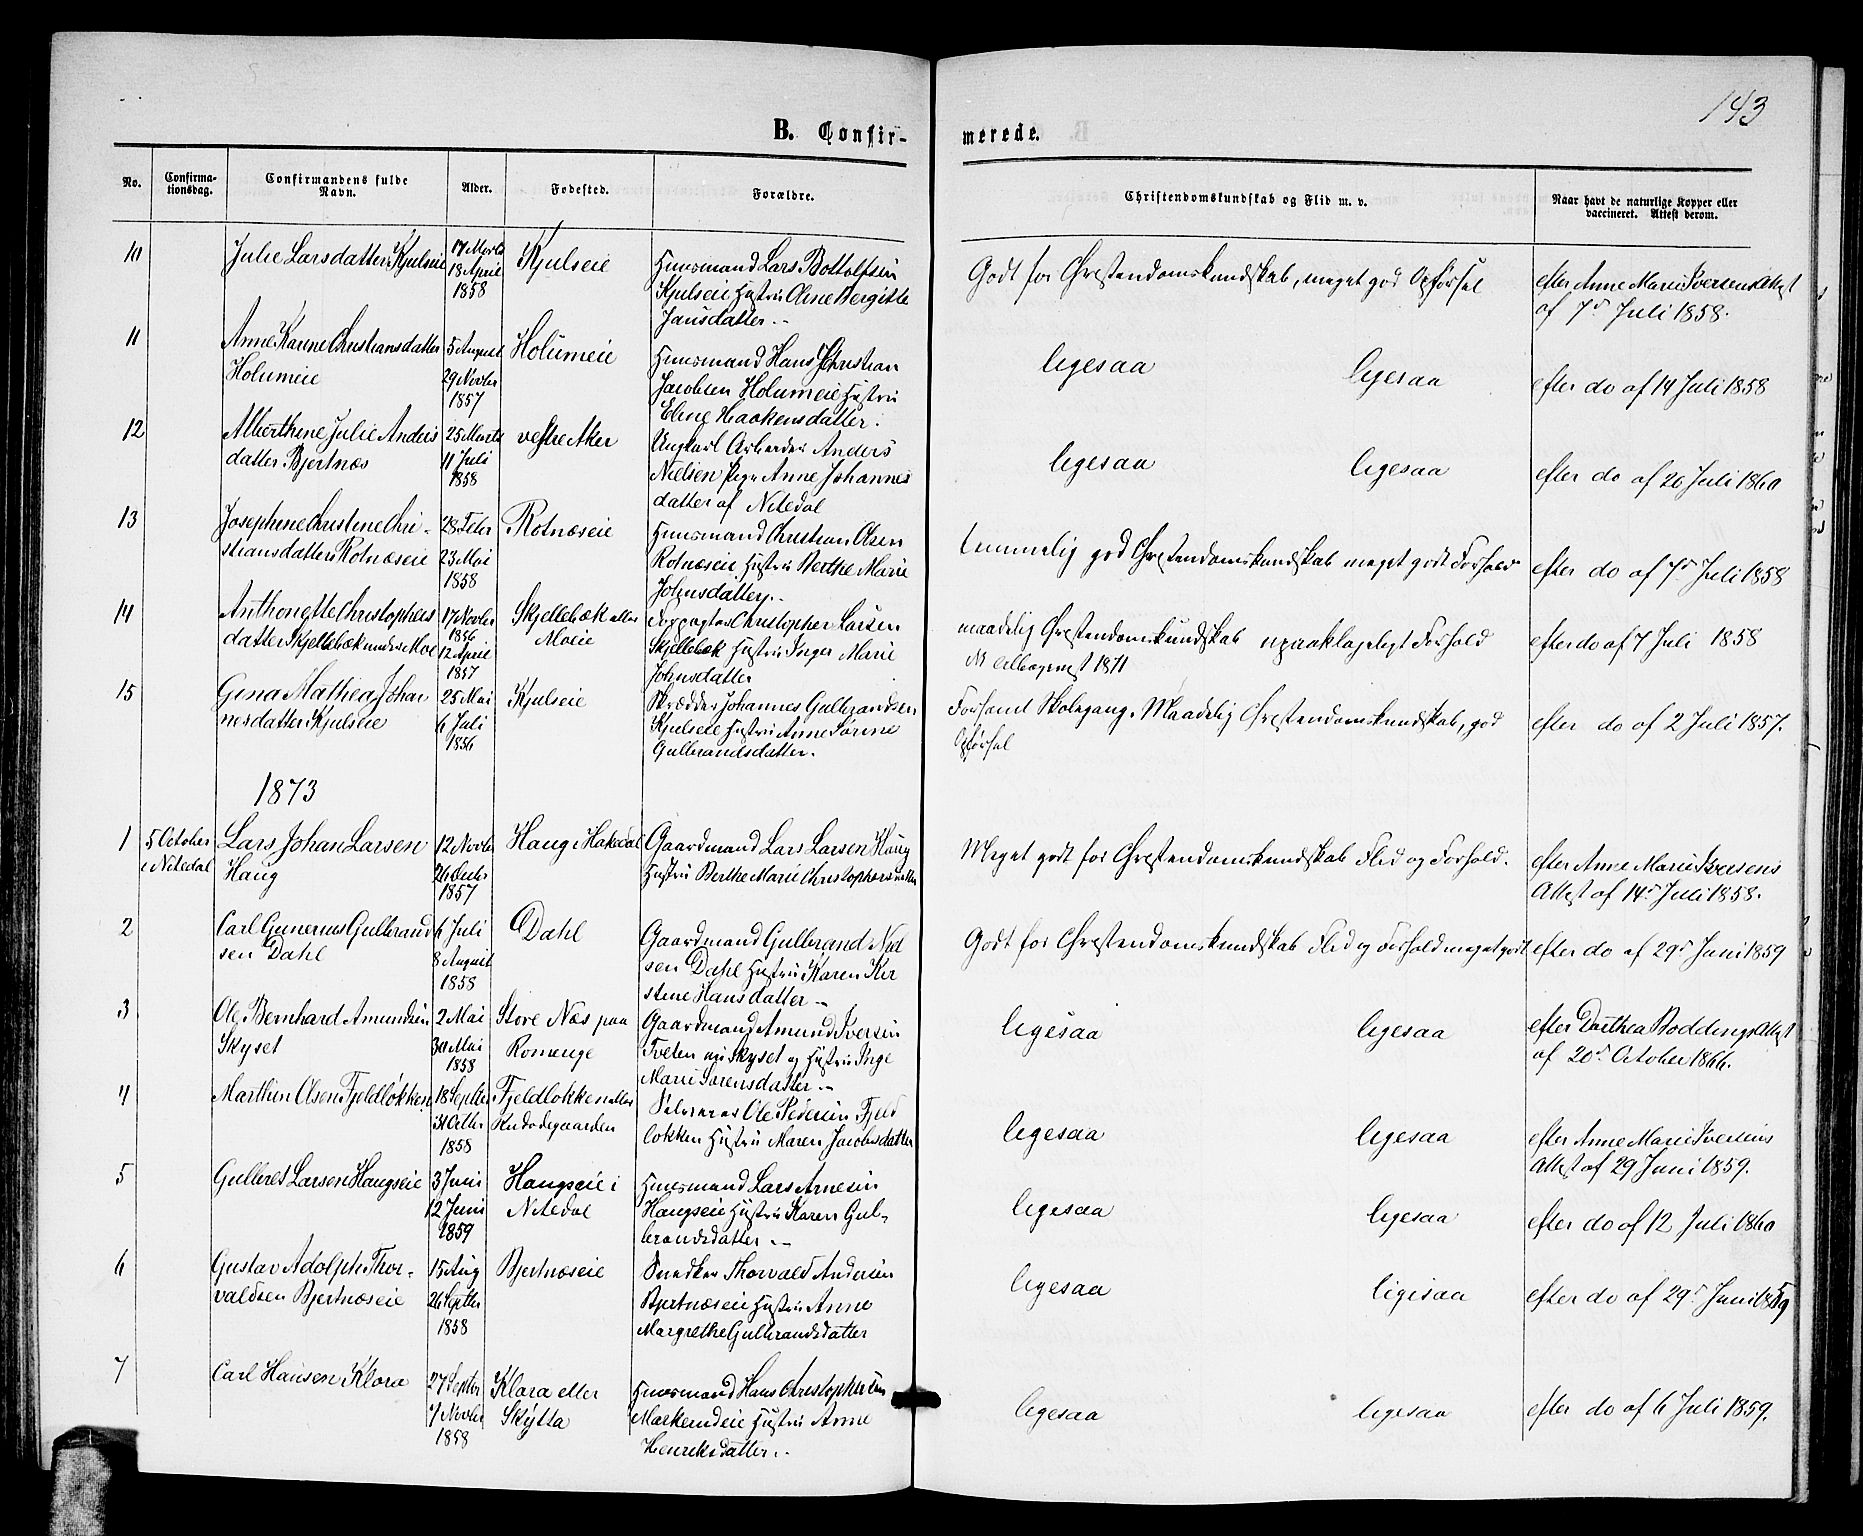 143
B. Confir-
merede.
No.
Confirma-
tionsdag.
Confirmandens fulde
Navn.
Alder.
Fødested.
Forældre.
Christendomskundskab og Flid m. v.
Naar havt de naturlige Kopper eller
vaccineret. Attest derom.
10
Julie Larsdatter Kjulseie
17 Marts
18 April
1858
Kjulseie
Huusmand Lars Bottolfsen
Kjulseie Hustru Oline Bergitte
Jansdatter
Godt for Christendomskundskab, meget god Opførsel
efter Anne Marie Iversens Attest
af 7de Juli 1858.
11
Anne Karine Christiansdatter
Holumeie
5 August
29 Novbr
1857
Holumeie
Huusmand Hans Christian
Jacobsen Holumeie Hustru
Eline Haakensdatter.
ligesaa ligesaa
efter do af 14 Juli 1858
12
Alberthine Julie Anders
datter Bjertnæs
25 Marts
11 Juli
1858
vestre Aker
Ungkarl Arbeider Anders
Nielsen Pige Anne Johannes
datter af Nitedal
ligesaa ligesaa
efter do af 26 Juli 1860
13
Josephine Christine Chri-
stiansdatter Rotnæseie
28 Febr
23 Mai
1858
Rotnæseie
Huusmand Christian Olsen
Rotnæseie Hustru Berthe Marie
Johnsdatter
temmelig god Christendomskundskab meget godt Forhold
efter do af 7de Juli 1858
14
Anthonette Christophers
datter Skjellebæk under Moe
17 Novbr
1856
12 April
1857
Skjellebæk eller
Moeie
Forpagter Christopher Larsen
Skjellebæk Hustru Inger Marie
Johnsdatter
maadelig Christendomskundskab upaaklageligt Forhold
1871
efter do af 7 Juli 1858
15
Gina Mathea Johan
nesdatter Kjulseie
25 Mai
6 Juli
1856
Kjulseie
Skrædder Johannes Gulbrandsen
Kjulseie Hustru Anne Sørine
Gulbrandsdatter.
Forsømt Skolegang. Maadelig Christendomskundskab, god
Opførsel
efter do af 2 Juli 1857.
1873
1
5 October
i Nitedal
Lars Johan Larsen
Haug
12 Novbr
26 Decbr
1857
Haug i Hakedal
Gaardmand Lars Larsen Haug
Hustru Berthe Marie Christophersdatter
Meget godt for Christendomskundskab Flid og Forhold.
efter Anne Marie Iversens
Attest af 14de Juli 1858.
2
Carl Gunerius Gulbrand
sen Dahl
6 Juli
8 August
1858
Dahl
Gaardmand Gulbrand Niel
sen Dahl Hustru Karen Kir
stine Hansdatter
Godt for Christendomskundskab Flid og Forhold meget godt
efter do af 29de Juni 1859
3
Ole Bernhard Amundsen
Skyset
2 Mai
30 Mai
1858
Store Næs paa
Romerige
Gaardmand Amund Iversen
Tveten nu Skyset og Hustru Inge
Marie Sørensdatter
ligesaa ligesaa
efter Dorthea Boddings Attest
af 20de October 1866.
4
Marthin Olsen Fjeldløkken
18 Septbr
31 Octbr
1858
Fjeldløkken eller
Selveier Ole Pedersen Fjeld
løkken Hustru Maren Jacobsdatter
ligesaa ligesaa
efter Anne Marie Iversens
Attest af 29 Juni 1859.
5
Gulbert Larsen Haugseie
3 Juni
12 Juni
1859
Haugseie i
Nitedal
Huusmand Lars Arnesen
Haugseie Hustru Karen Gul-
brandsdatter
ligesaa ligesaa
efter do af 12 Juli 1860
6
Gustav Adolph Thor-
valdsen Bjertnæseie
15 Aug
26 Septbr
1858
Bjertnæseie
Snedker Thorvald Andersen
Bjertnæseie Hustru Anne
Margrethe Gulbrandsdatter
ligesaa ligesaa
efter do af 29de Juni 1859
7
Carl Hansen Klora
27 Septbr
7 Novbr
1858
Klora eller
Skytta
Huusmand Hans Christophersen
Markerudeie Hustru Anne
Henriksdatter
ligesaa ligesaa
efter do af 6 Juli 1859.